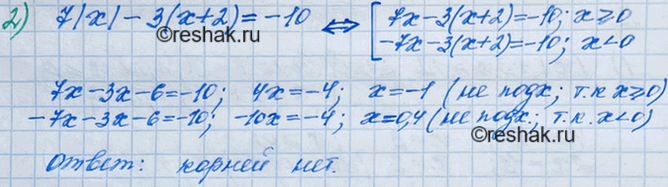 2) 7|x| - 3(x+2) = -10 ⇔ [ 7x-3(x+2)=-10; x≥0
-7x-3(x+2)=-10; x<0
©reshak.ru
7x-3x-6=-10; 4x=-4; x=-1 (не подх; т.к x≥0)
-7x-3x-6=-10; -10x=-4; x=0,4 (не подх.; т.к. x<0)
©reshak.ru
Ответ: корней нет.